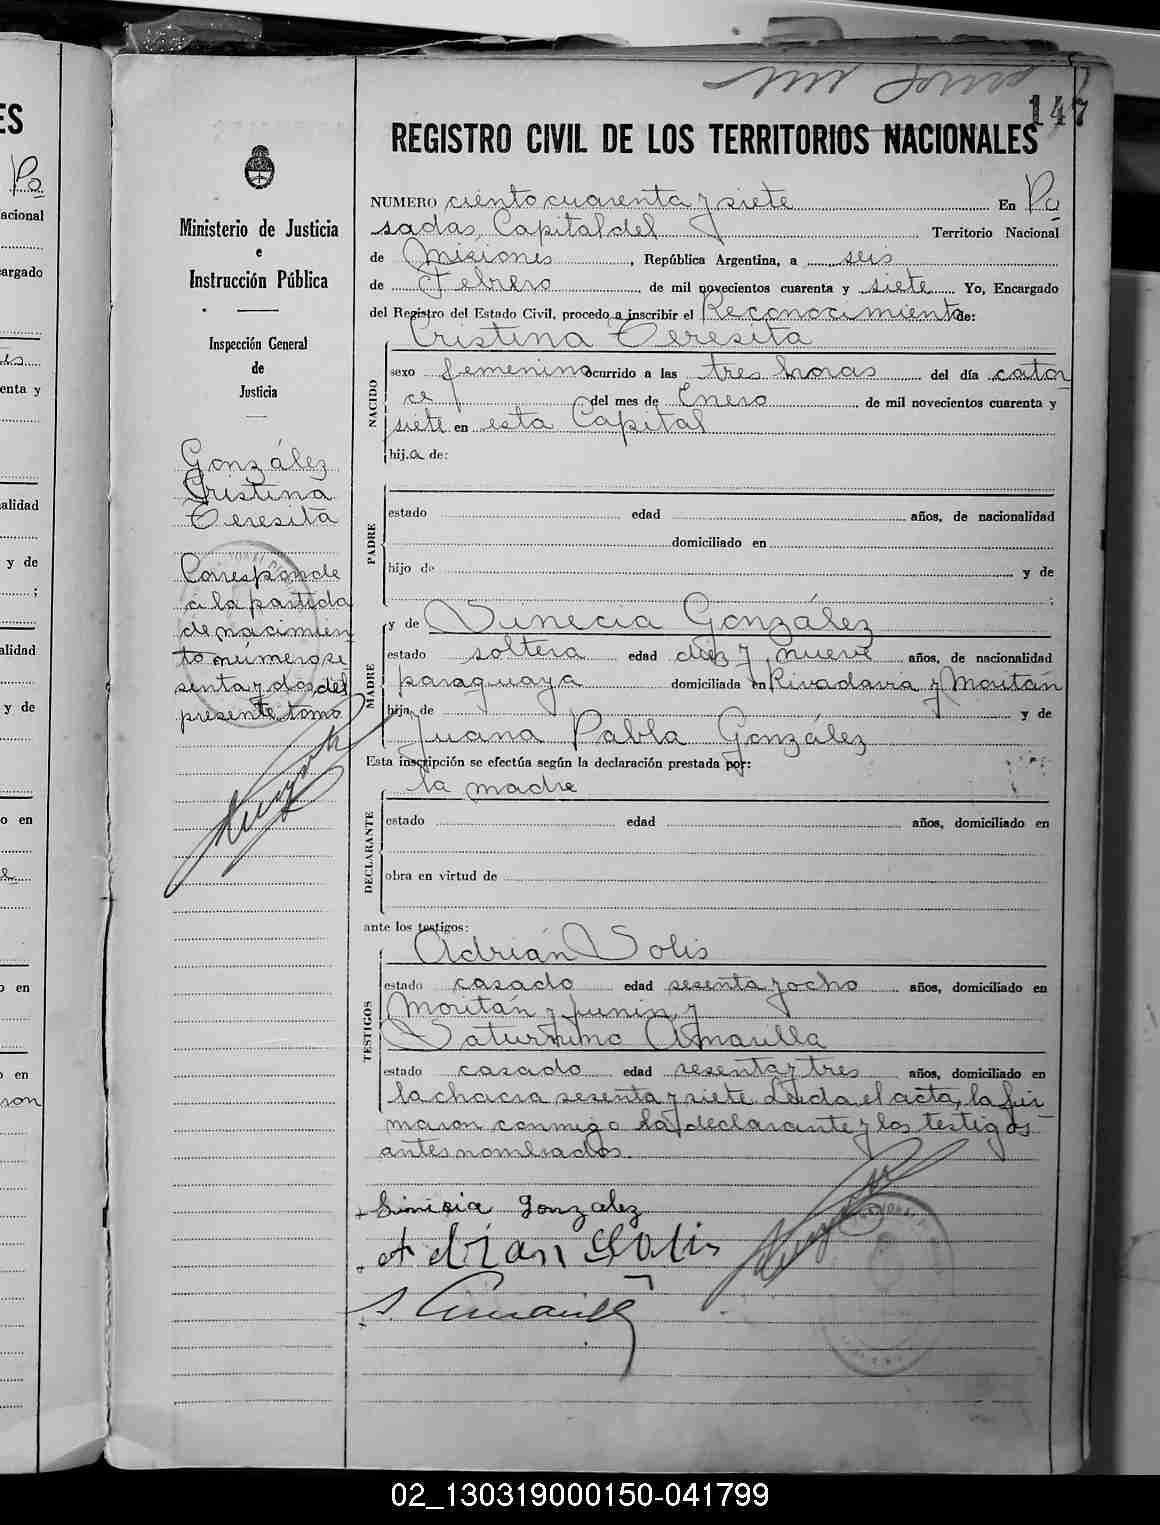 147
REGISTRO CIVIL DE LOS TERRITORIOS NACIONALES
Ministerio de Justicia
e
Instrucción Pública
Inspección General
de
Justicia
González
Cristina
Teresita
Corresponde
a la partida
de nacimien
to número se
senta y dos del
presente tomo
NUMERO ciento cuarenta y siete En Po
sadas, Capital del Territorio Nacional
de Misiones, República Argentina, a seis
de Febrero de mil novecientos cuarenta y siete Yo, Encargado
del Registro del Estado Civil, procedo a inscribir el Reconocimiento de:
Cristina Teresita
NACIDO
sexo femenino ocurrido a las tres horas del día cator
ce del mes de Enero de mil novecientos cuarenta y
siete en esta Capital
hija de:
PADRE
estado edad años, de nacionalidad
domiciliado en
hijo de y de
;
MADRE
y de Sinecia González
estado soltera edad diez y nueve años, de nacionalidad
paraguaya domiciliada en Rivadavia y Moritán
hija de y de
Juana Pabla González
Esta inscripción se efectúa según la declaración prestada por:
la madre
DECLARANTE
estado edad años, domiciliado en
obra en virtud de
ante los testigos:
TESTIGOS
Adrián Solis
estado casado edad sesenta y ocho años, domiciliado en
Moritán y Junin, y
Saturnino Amarilla
estado casado edad sesenta y tres años, domiciliado en
la chacra sesenta y siete. Leida el acta, la fir
maron conmigo la declarante y los testigos
antes nombrados.
Sinicia Gonzalez
Adrian Solis
S. Amarilla
ES
Po
acional
argado
enta y
alidad
y de
;
alidad
y de
o en
o en
o en
ron
02_130319000150-041799